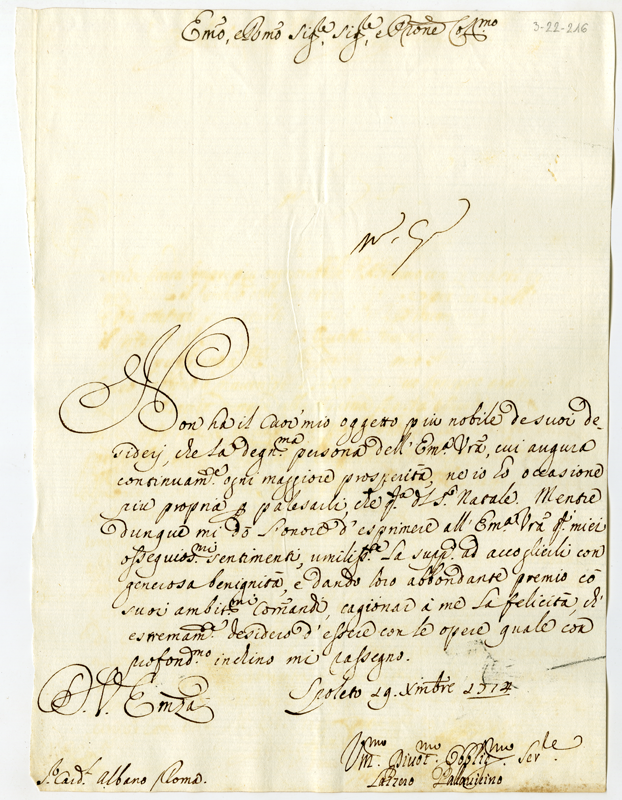 3-22-216
Emo, e Rmo Sigre, Sigre, e Prone Colmo
Non ha il cuor mio oggetto piu nobile de suoi de-
siderj, che la degnma persona dell' Ema Vra, cui augura
continuamte ogni maggiore prosperità, ne io hò occasione
piu propria p palesarli, che qta del So Natale. Mentre
dunque mi dò l'onore d'esprimere all' Ema Vra qti miei
ossequiosmi sentimenti, umilisste la supp. ad accoglierli con
generosa benignità, e dando loro abbondante premio cò
suoi ambitmi Comandi, cagionar à me la felicità, ch'
estremamte desidero d'essere con le opere quale con
profondmo inchino mi rassegno.
D. V. Emza
Spoleto 19. Xmbre 1714
Vmo Divotmo Obbligmo Serle
Sr Cardl Albano Roma.